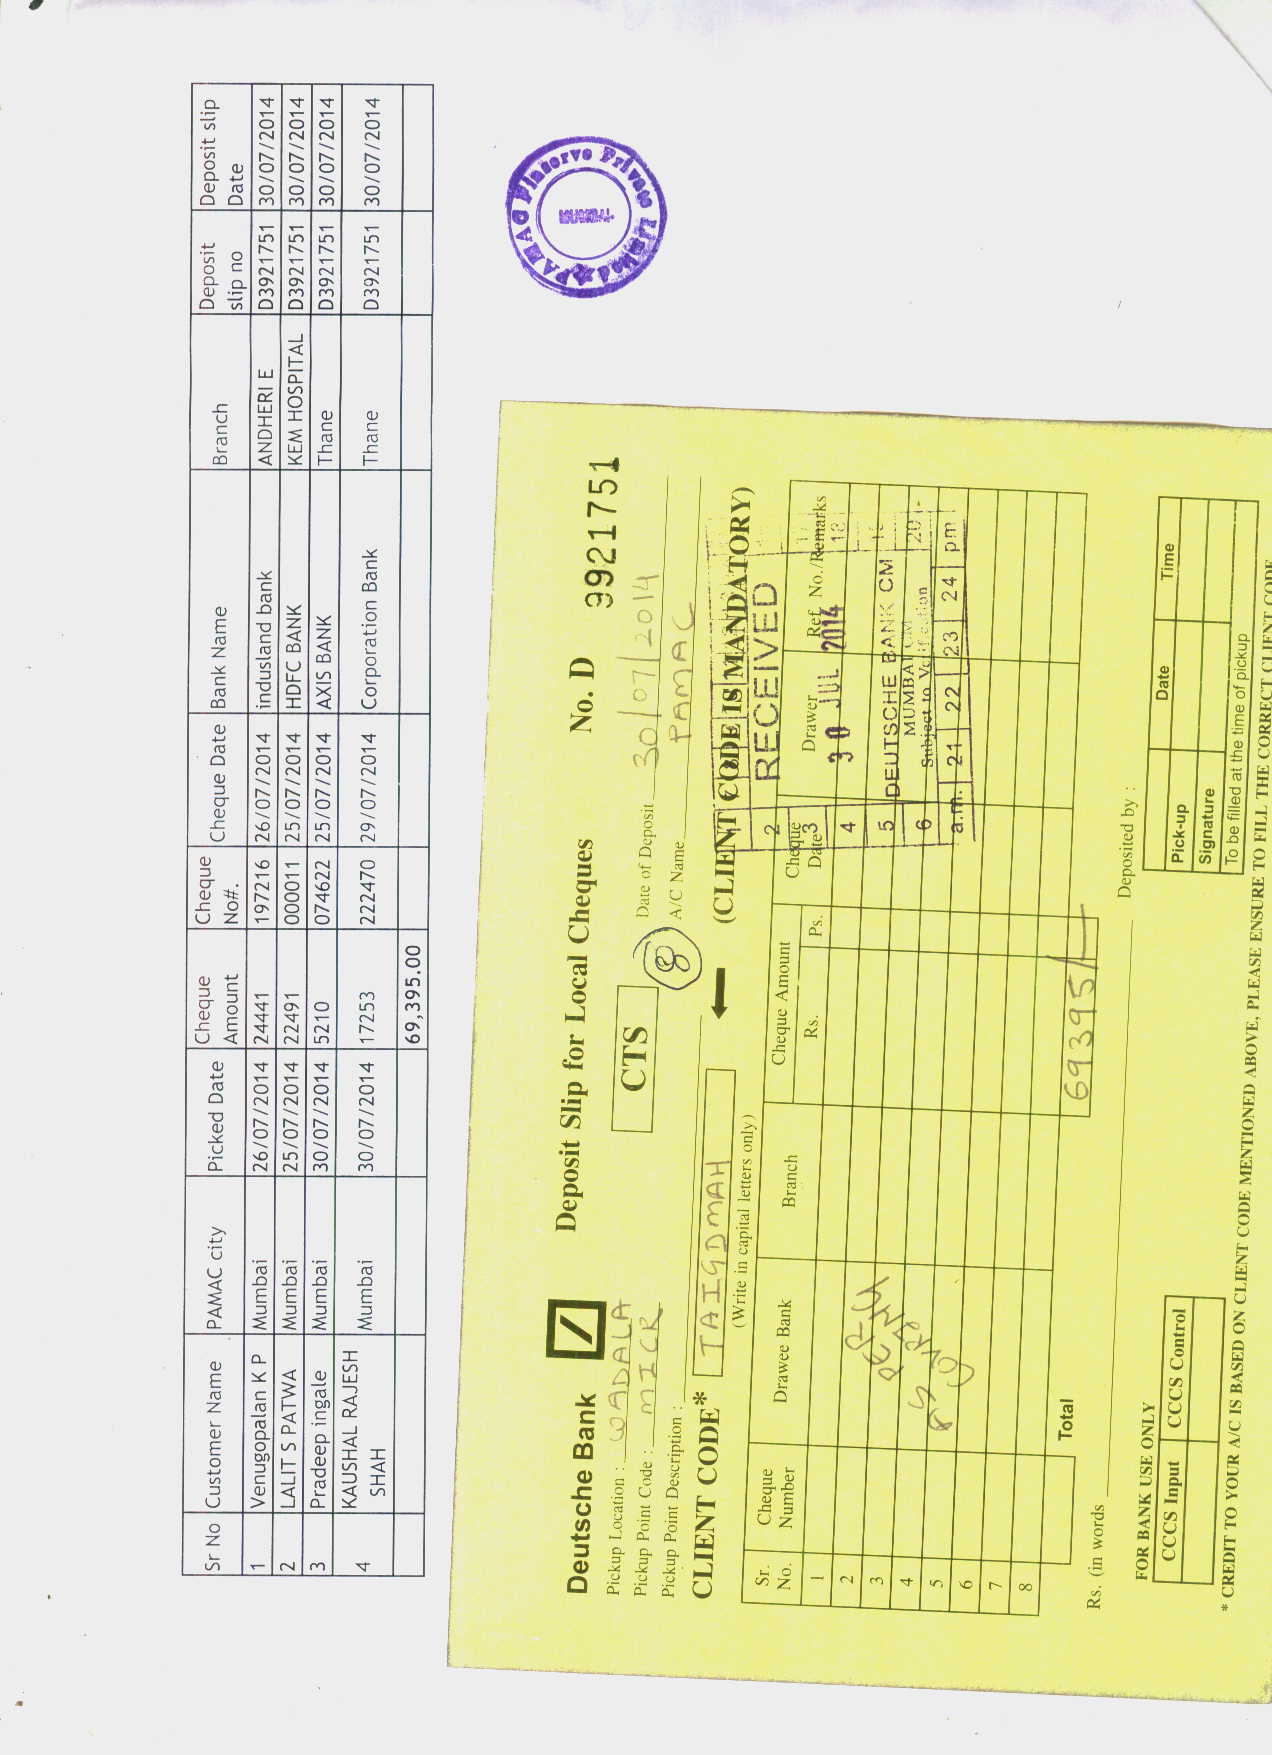 Sr No Customer Name PAMAC city Picked Date Cheque Amount Cheque No#. Cheque Date Bank Name Branch Deposit slip no Deposit slip Date
1 Venugopalan K P Mumbai 26/07/2014 24441 197216 26/07/2014 indusland bank ANDHERI E D3921751 30/07/2014
2 LALIT S PATWA Mumbai 25/07/2014 22491 000011 25/07/2014 HDFC BANK KEM HOSPITAL D3921751 30/07/2014
3 Pradeep ingale Mumbai 30/07/2014 5210 074622 25/07/2014 AXIS BANK Thane D3921751 30/07/2014
4 KAUSHAL RAJESH SHAH Mumbai 30/07/2014 17253 222470 29/07/2014 Corporation Bank Thane D3921751 30/07/2014
69,395.00
PAMAC Finserve Private Limited
MUMBAI
Deutsche Bank Deposit Slip for Local Cheques No. D 9921751
Pickup Location : WADALA CTS Date of Deposit 30/07/2014
Pickup Point Code : MICR 8 A/C Name PAMAC
Pickup Point Description :
CLIENT CODE* TAIGDMAH (CLIENT CODE IS MANDATORY)
(Write in capital letters only)
Sr. No. Cheque Number Drawee Bank Branch Cheque Amount Rs. Ps. Cheque Date Drawer Ref. No./Remarks
1
2
3
4
5
6
7
8
2 RECEIVED
3 30 JUL 2014
4 18
5 DEUTSCHE BANK CM
6 MUMBAI
Subject to Verification
a.m. 21 22 23 24 pm
Total 69395/-
Rs. (in words Deposited by :
FOR BANK USE ONLY
CCCS Input CCCS Control
Pick-up Date Time
Signature
To be filled at the time of pickup
* CREDIT TO YOUR A/C IS BASED ON CLIENT CODE MENTIONED ABOVE, PLEASE ENSURE TO FILL THE CORRECT CLIENT CODE